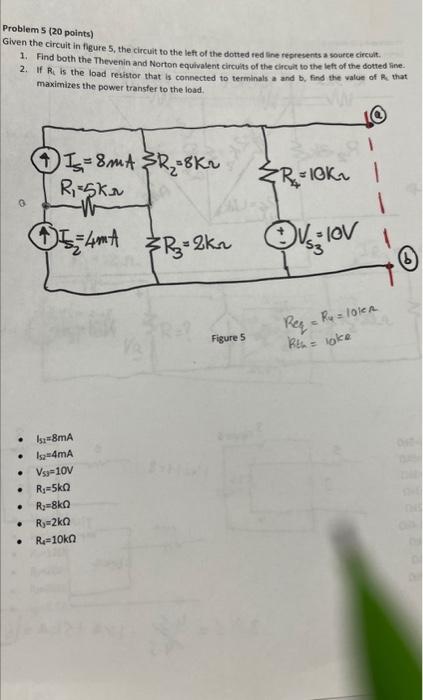 Problem 5 (20 points)
Given the circuit in figure 5, the circuit to the left of the dotted red line represents a source circuit.
1. Find both the Thevenin and Norton equivalent circuits of the circuit to the left of the dotted line.
2. If RL is the load resistor that is connected to terminals a and b, find the value of RL that
maximizes the power transfer to the load.
a
IS1=8mA R2=8KΩ
R4=10KΩ
R1=5KΩ
IS2=4mA R3=2KΩ
VS3=10V
b
Req = R4 = 10kΩ
Rth = 10kΩ
Figure 5
• IS1=8mA
• IS2=4mA
• VS3=10V
• R1=5kΩ
• R2=8kΩ
• R3=2kΩ
• R4=10kΩ